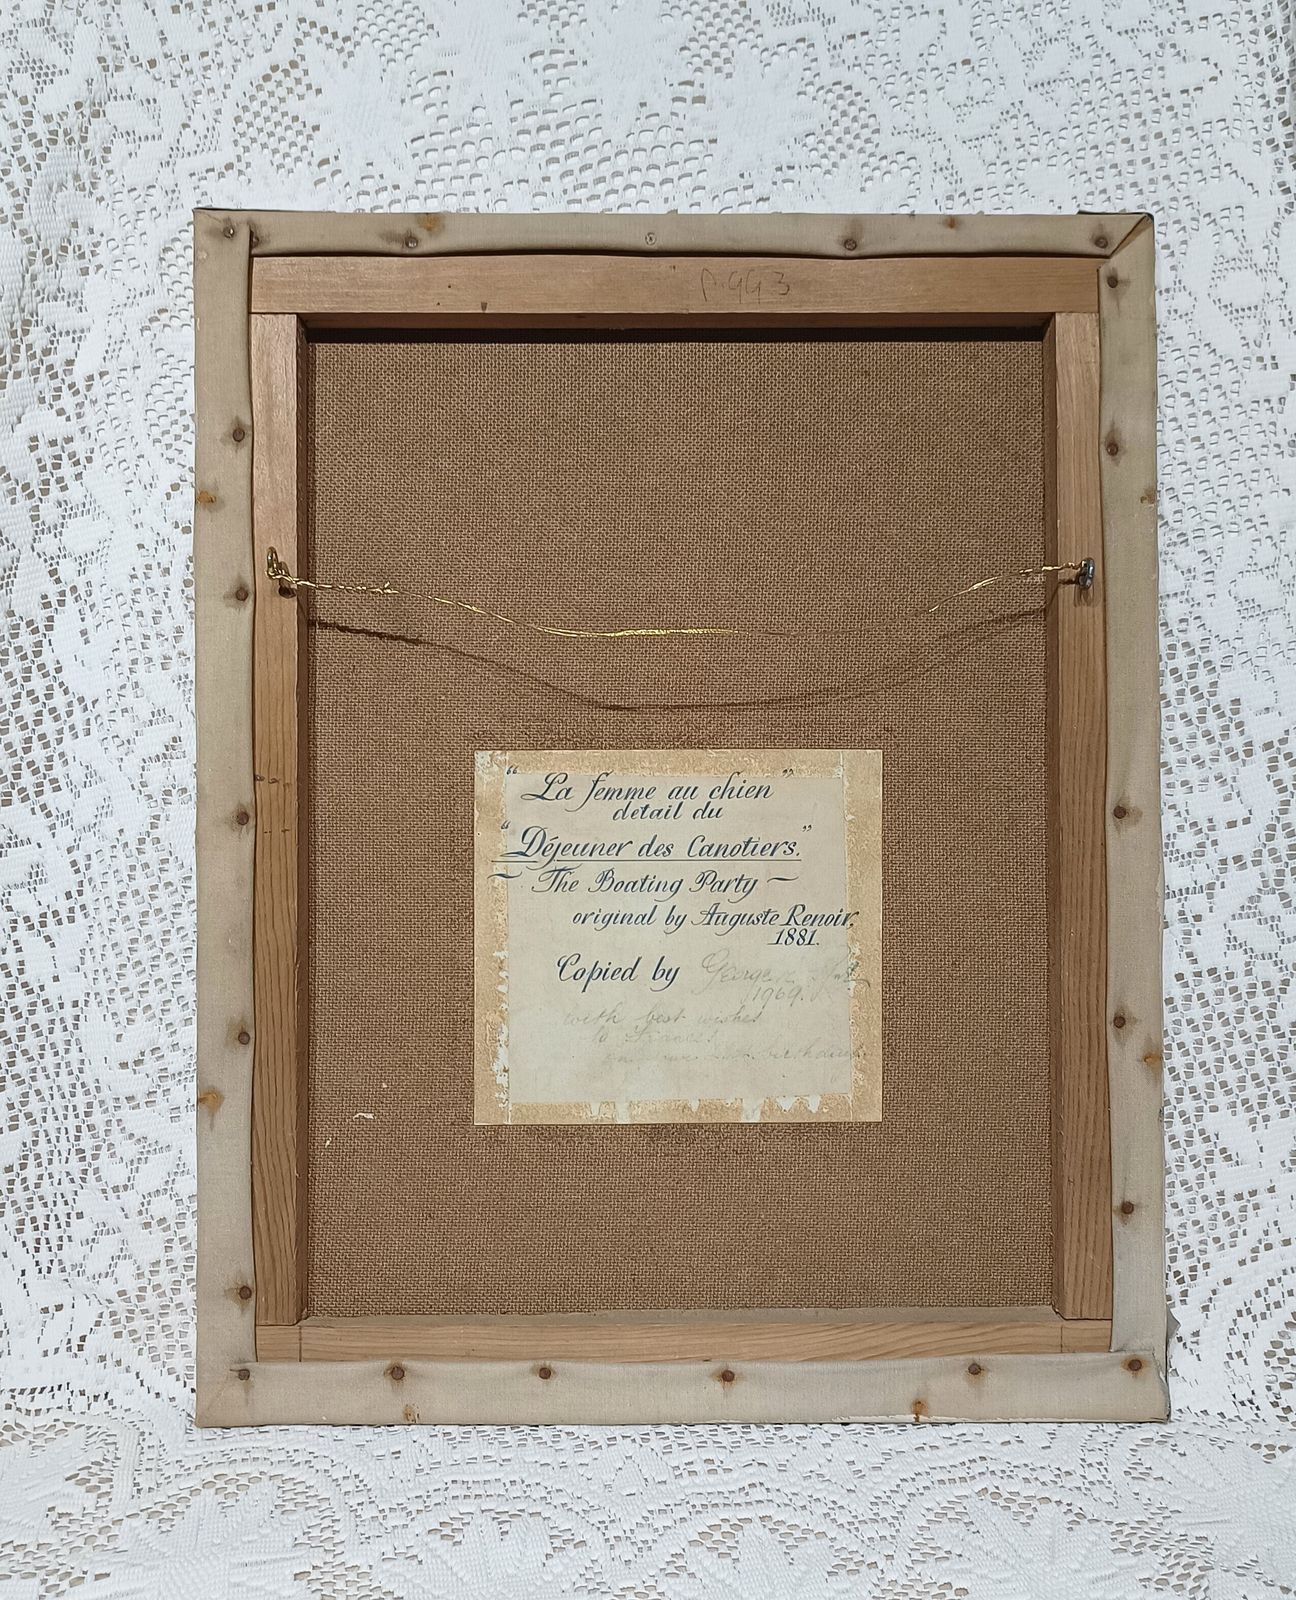 "La femme au chien"
detail du
"Déjeuner des Canotiers."
~ The Boating Party ~
original by Auguste Renoir,
1881.
Copied by George
1969.
with best wishes
to Frances
on birthday